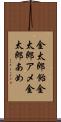 金太郎飴金
太郎アメ金
太郎あめ